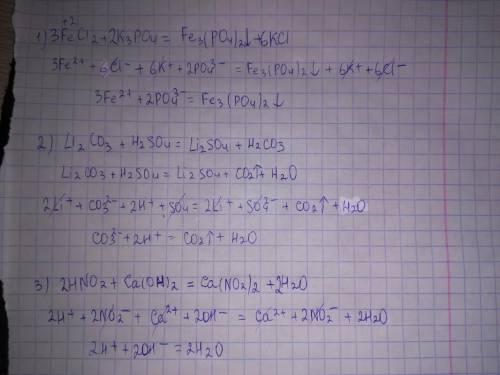 1) 3Fe⁺²Cl₂+2K₃PO₄ = Fe₃(PO₄)₂↓+6KCl
3Fe²⁺+6Cl⁻+6K⁺+2PO₄³⁻ = Fe₃(PO₄)₂↓+6K⁺+6Cl⁻
3Fe²⁺+2PO₄³⁻ = Fe₃(PO₄)₂↓
2) Li₂CO₃+H₂SO₄ = Li₂SO₄+H₂CO₃
Li₂CO₃+H₂SO₄ = Li₂SO₄+CO₂↑+H₂O
2Li⁺+CO₃²⁻+2H⁺+SO₄ = 2Li⁺+SO₄²⁻+CO₂↑+H₂O
CO₃²⁻+2H⁺ = CO₂↑+H₂O
3) 2HNO₂+Ca(OH)₂ = Ca(NO₂)₂+2H₂O
2H⁺+2NO₂⁻+Ca²⁺+2OH⁻ = Ca²⁺+2NO₂⁻+2H₂O
2H⁺+2OH⁻ = 2H₂O